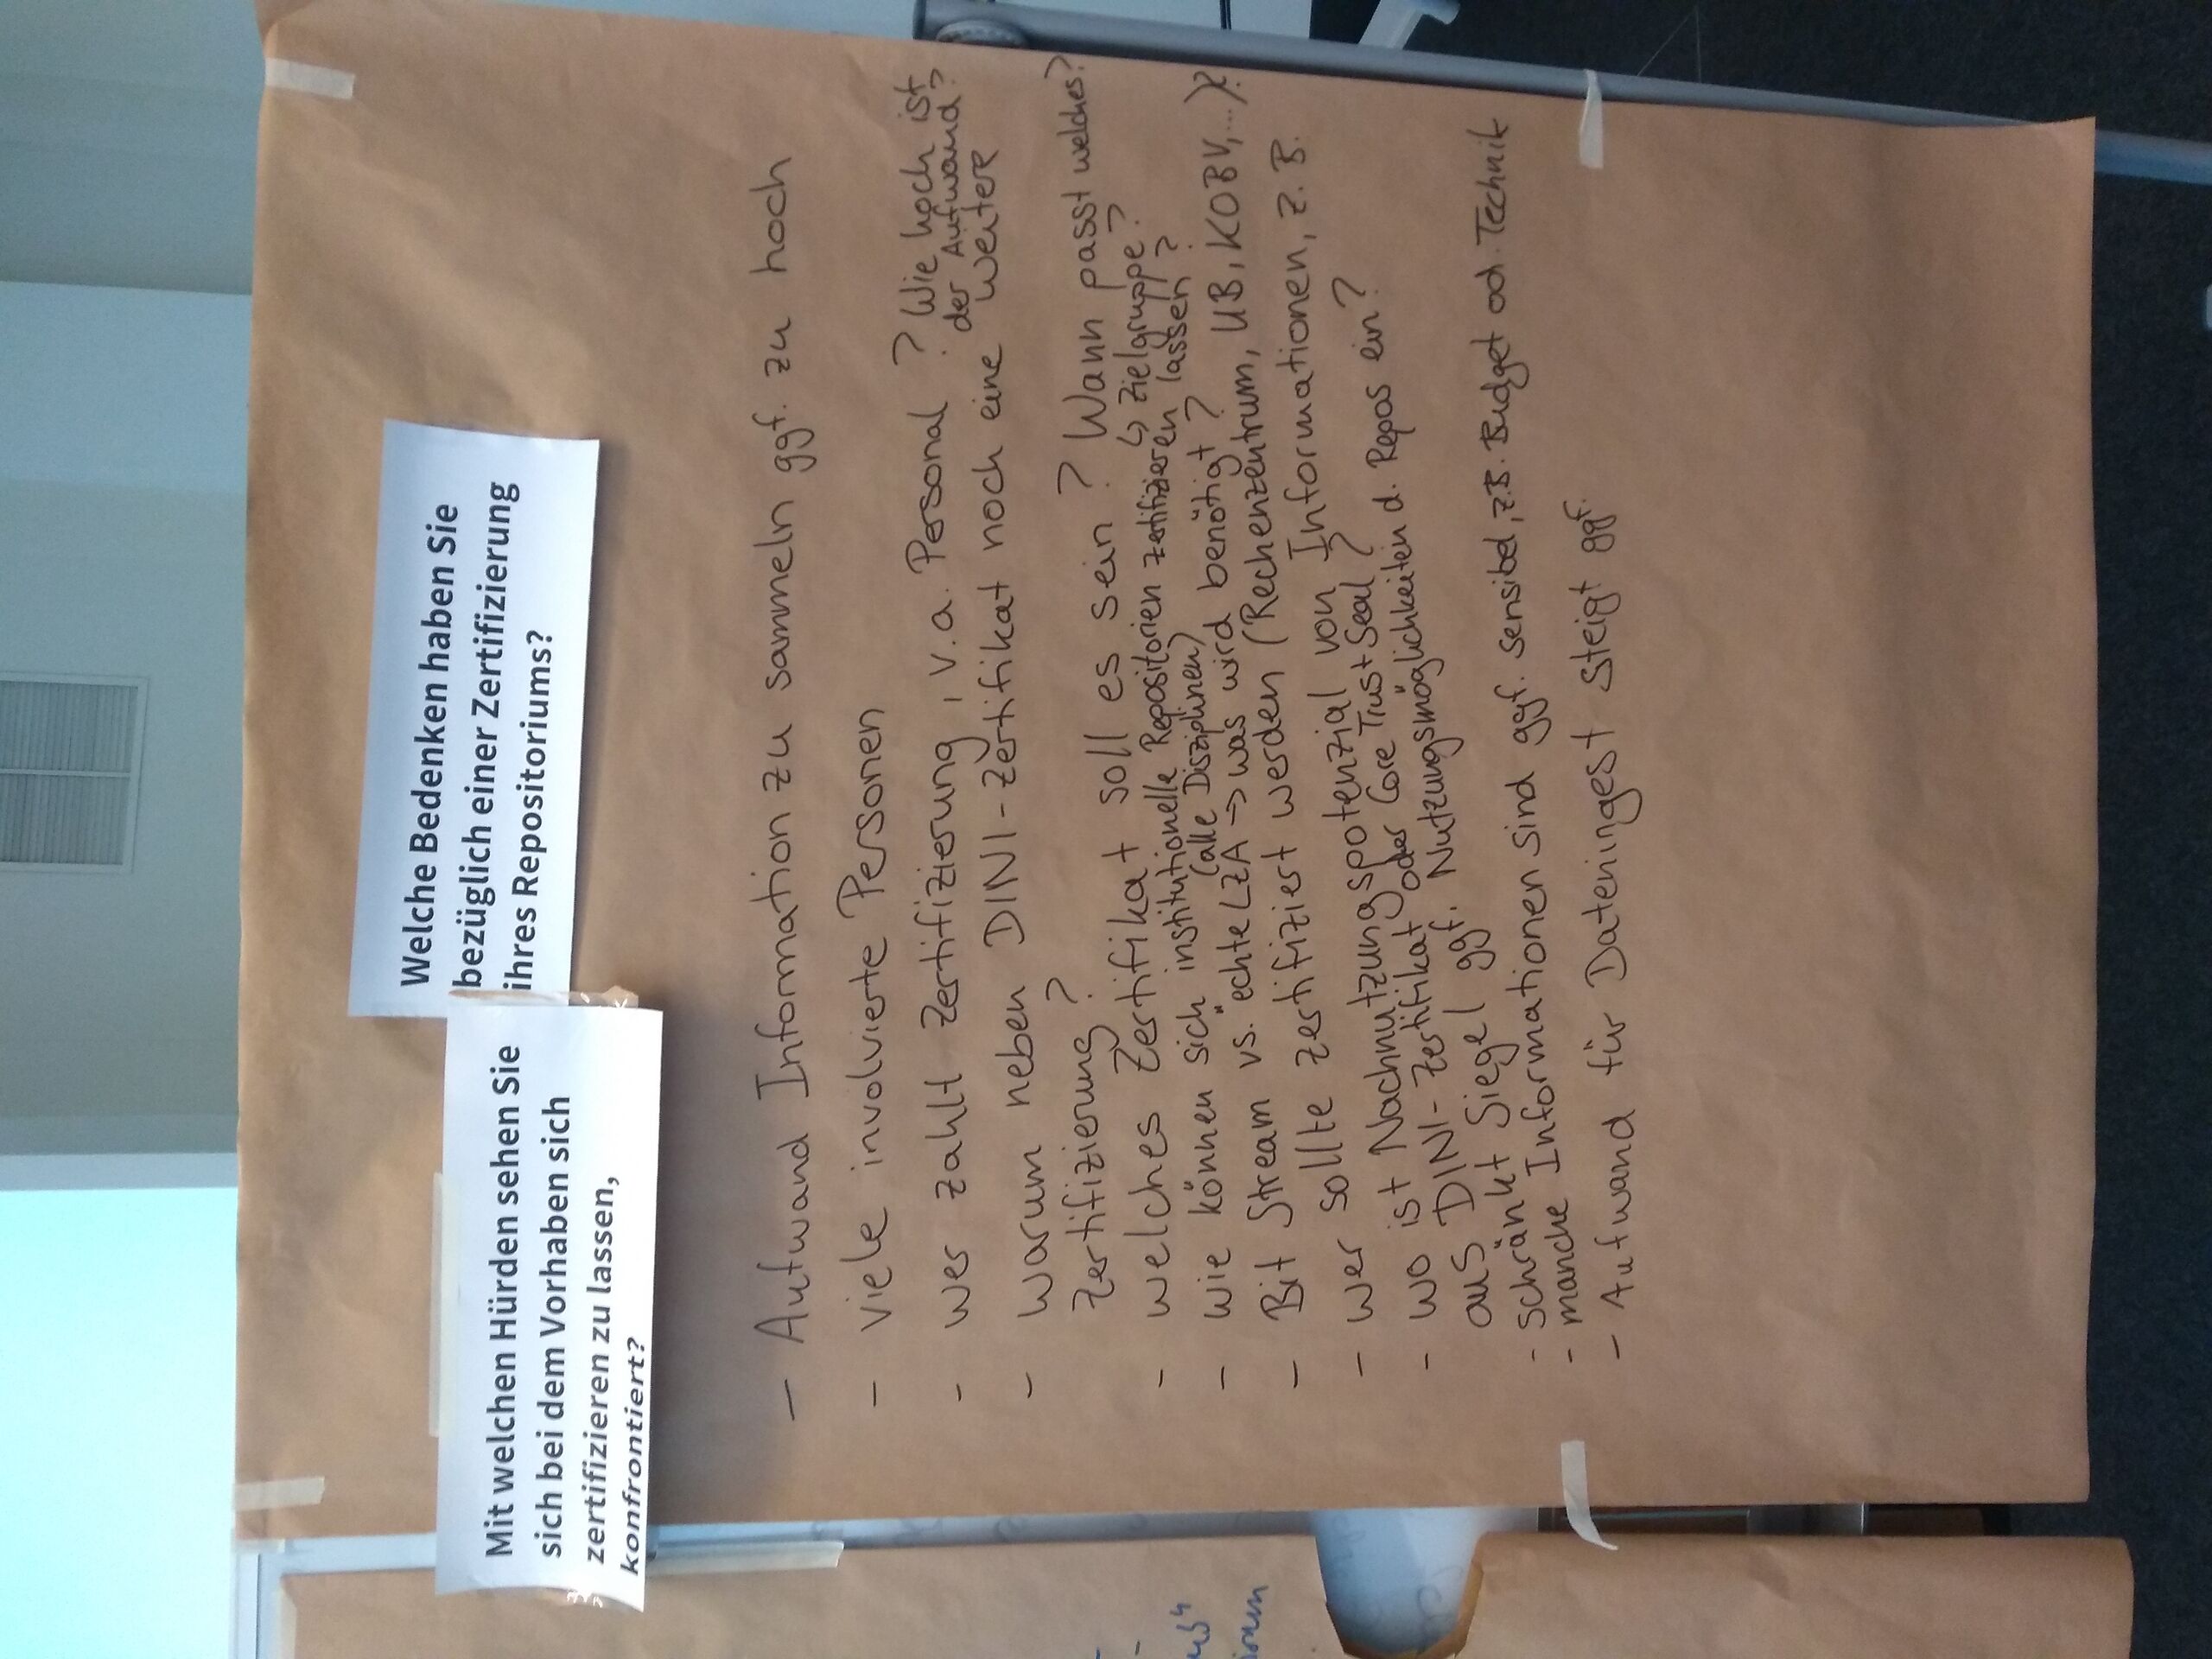 Mit welchen Hürden sehen Sie
sich bei dem Vorhaben sich
zertifizieren zu lassen,
konfrontiert?
Welche Bedenken haben Sie
bezüglich einer Zertifizierung
ihres Repositoriums?
- Aufwand Information zu sammeln ggf. zu hoch
- viele involvierte Personen
- wer zahlt Zertifizierung, v.a. Personal? Wie hoch ist
der Aufwand?
- warum neben DINI-Zertifikat noch eine weitere
Zertifizierung?
- welches Zertifikat soll es sein? Wann passt welches?
↳ Zielgruppe?
- wie können sich institutionelle Repositorien zertifizieren lassen?
(alle Disziplinen)
- Bit Stream vs. "echte LZA" => was wird benötigt?
- wer sollte zertifiziert werden (Rechenzentrum, UB, KOBV, ...)?
- wo ist Nachnutzungspotenzial von Informationen, z.B.
aus DINI-Zertifikat oder Core Trust Seal?
- schränkt Siegel ggf. Nutzungsmöglichkeiten d. Repos ein?
- manche Informationen sind ggf. sensibel, z.B. Budget od. Technik
- Aufwand für Dateningest steigt ggf.